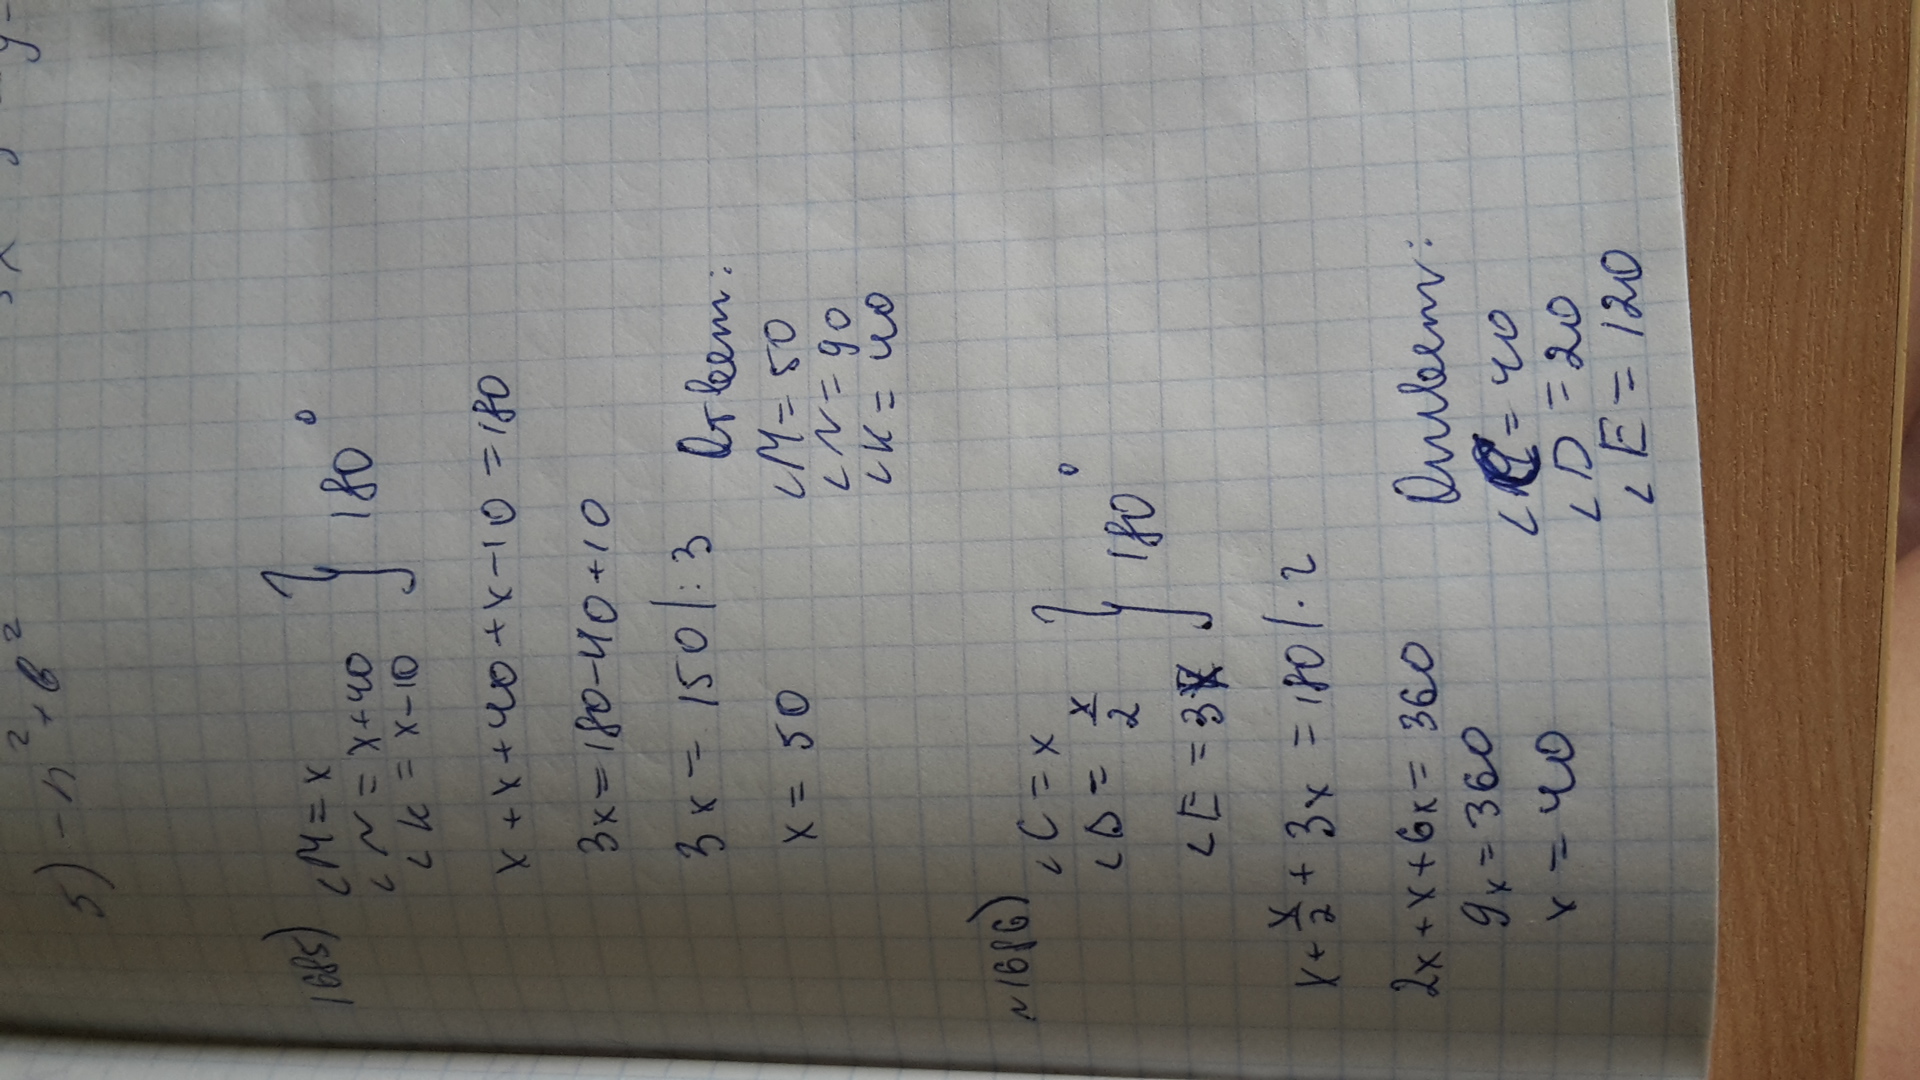 5) -n² + b²
1685) ∠M = x
∠N = x+40
∠K = x-10
} 180°
x + x + 40 + x - 10 = 180
3x = 180 - 40 + 10
3x = 150 | : 3
x = 50
Ответ:
∠M = 50
∠N = 90
∠K = 40
№1686) ∠C = x
∠D = x/2
∠E = 3x
} 180°
x + x/2 + 3x = 180 | · 2
2x + x + 6x = 360
9x = 360
x = 40
Ответ:
∠C = 40
∠D = 20
∠E = 120